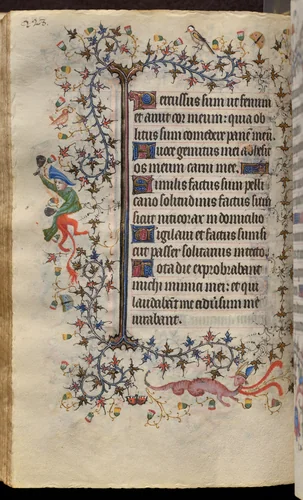 223.
Percussus sum ut fenum
et aruit cor meum: quia ob
litus sum comedere panē meū
A uoce gemitus mei adhesit
os meum carni mee.
Similis factus sum pelli
cano solitudinis factus sum
sicut niticorax in domicilio
Vigilaui et factus sum si
cut passer solitarius in tecto
Tota die exprobrabant
michi inimici mei: et qui
laudabāt me aduersum me
iurabant.